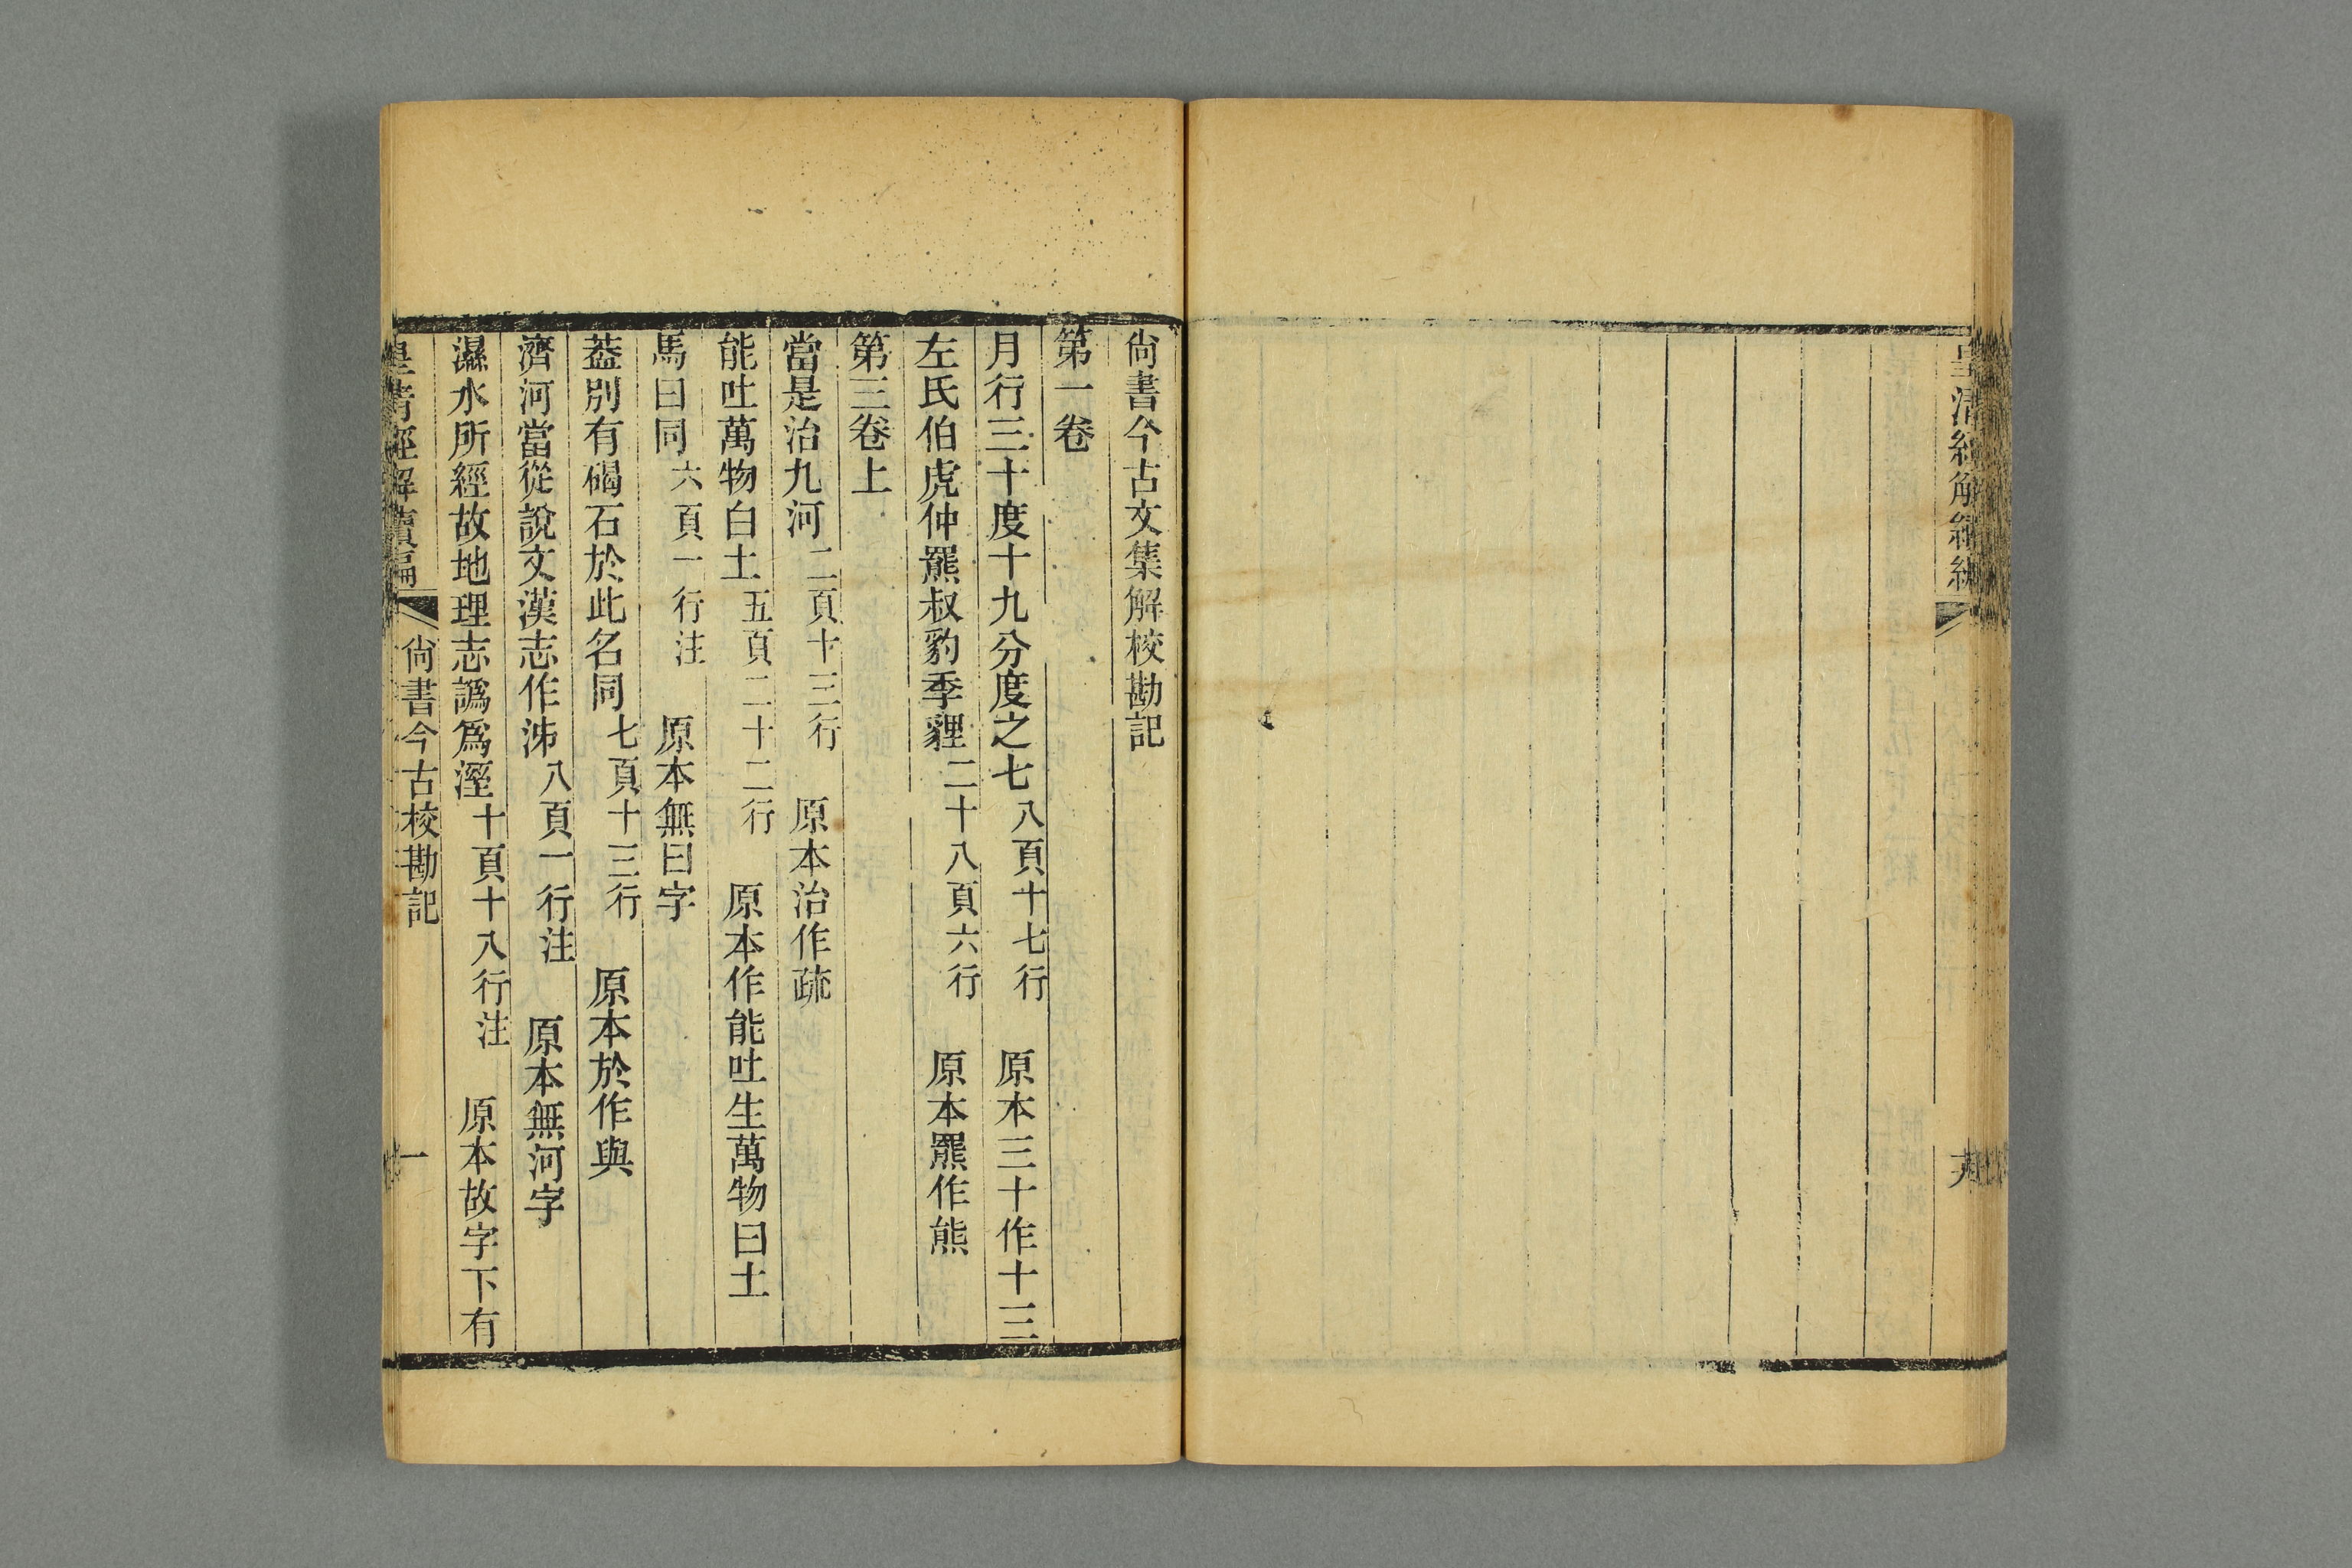 皇清經解續編
尚書今古文集解校勘記
第一卷
月行三十度十九分度之七 八頁十七行 原本三十作十三
左氏伯虎仲羆叔豹季貍 二十八頁六行 原本羆作熊
第三卷上
當是治九河 二頁十三行 原本治作疏
能吐萬物白土 五頁二十二行 原本作能吐生萬物曰土
馬曰同 六頁一行注 原本無曰字
葢別有碣石於此名同 七頁十三行 原本於作與
濟河當從說文漢志作泲 八頁一行注 原本無河字
濕水所經故地理志譌爲溼 十頁十八行注 原本故字下有
皇清經解續編 尚書今古校勘記 一